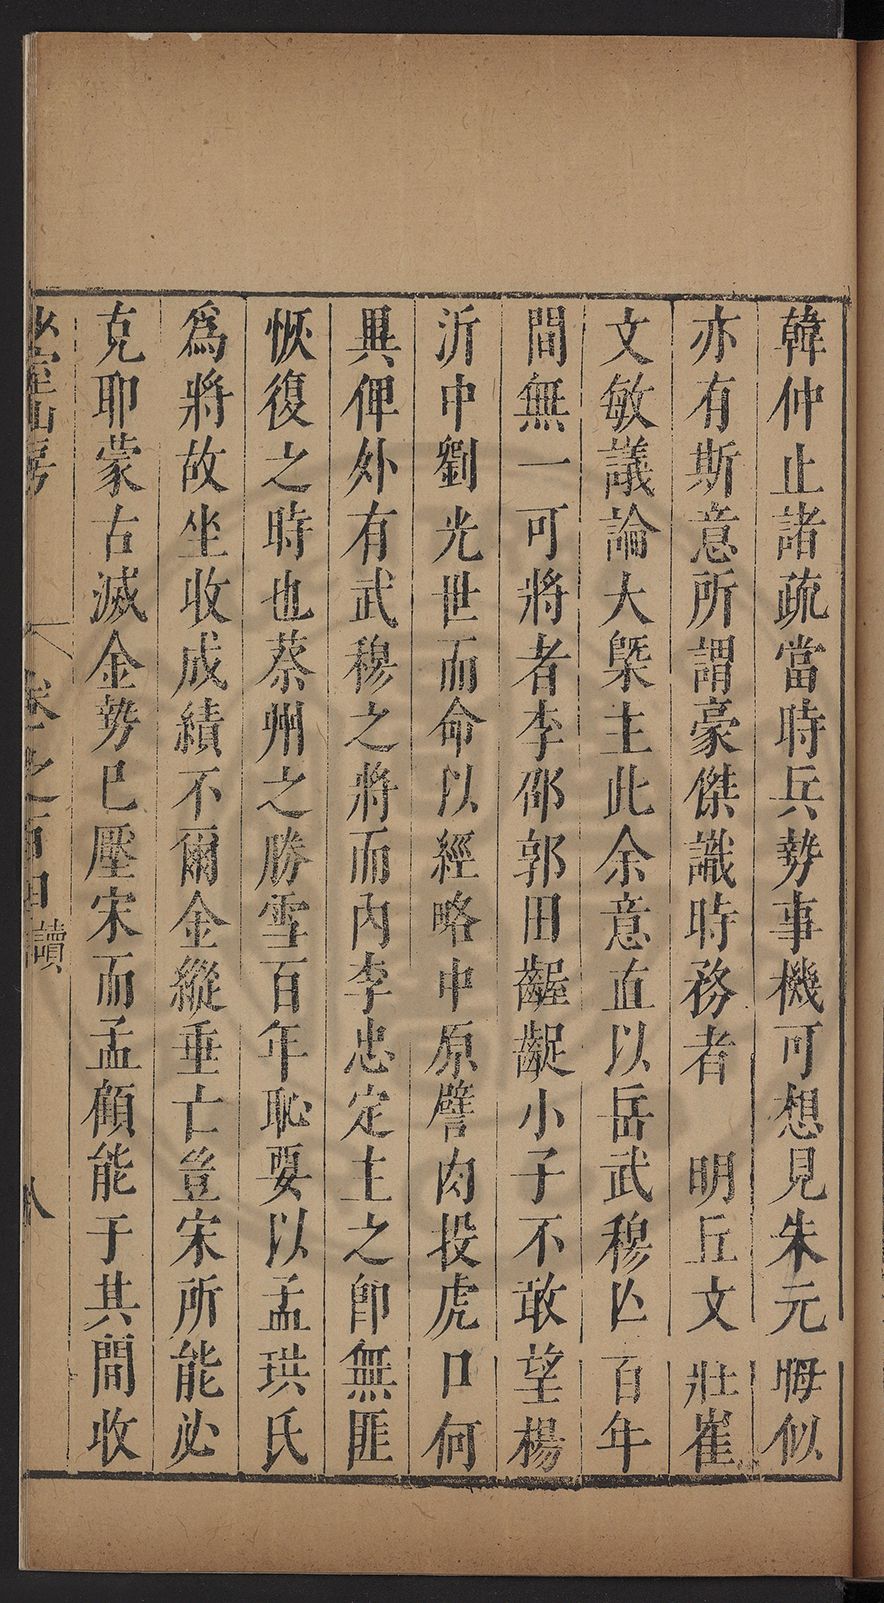 韓仲止諸疏當時兵勢事機可想見朱元晦似
亦有斯意所謂豪傑識時務者　明丘文莊崔
文敏議論大槩主此余意直以岳武穆亡百年
間無一可將者李邵郭田齷齪小子不敢望楊
沂中劉光世而命以經略中原譬肉投虎口何
異俾外有武穆之將而內李忠定主之卽無匪
恢復之時也蔡州之勝雪百年恥要以孟珙氏
爲將故坐收成績不爾金縱垂亡豈宋所能必
克耶蒙古滅金勢已壓宋而孟顧能于其間收
少室山房　卷之百四　讀　八